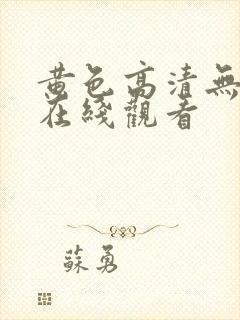 黄色高清無
在綫觀看
蘇勇